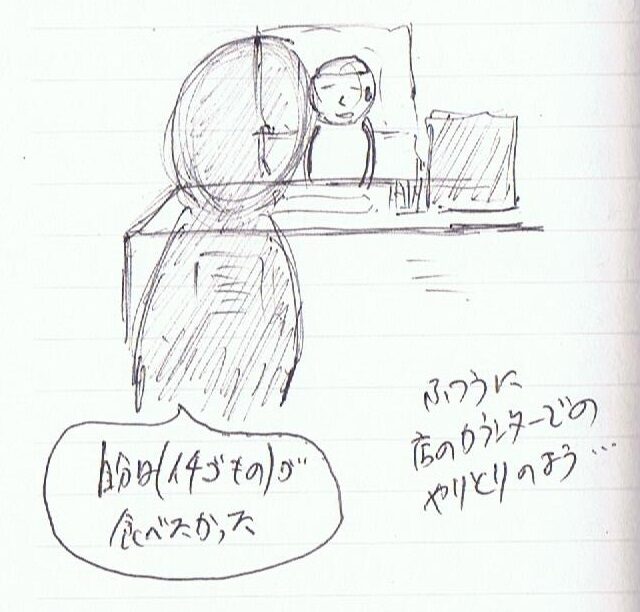 自分は(イチゴもの)が
食べたかった
ふつうに
店のカウンターでの
やりとりのよう…